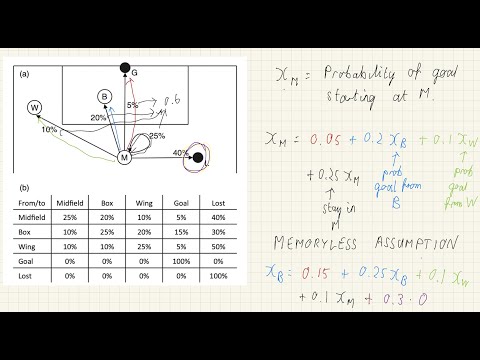 (a)
G
B
0.6
5%
W
20%
10%
25%
M
40%
L
(b)
From/to Midfield Box Wing Goal Lost
Midfield 25% 20% 10% 5% 40%
Box 10% 25% 20% 15% 30%
Wing 10% 10% 25% 5% 50%
Goal 0% 0% 0% 100% 0%
Lost 0% 0% 0% 0% 100%
x_M = Probability of goal
starting at M.
x_M = 0.05 + 0.2 x_B + 0.1 x_W
prob prob
goal from goal
B from W
+ 0.25 x_M
stay in
M
MEMORYLESS ASSUMPTION
x_B = 0.15 + 0.25 x_B + 0.1 x_W
+ 0.1 x_M + 0.3 · 0